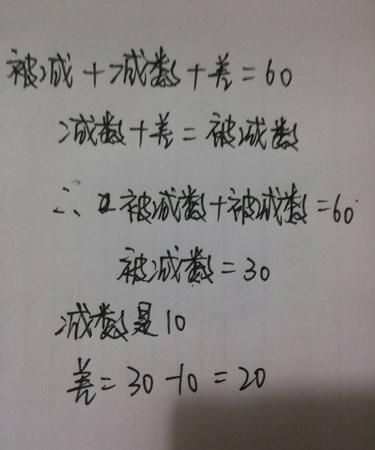 被减+减数+差=60
减数+差=被减数
∴被减数+被减数=60
被减数=30
减数是10
差=30-10=20